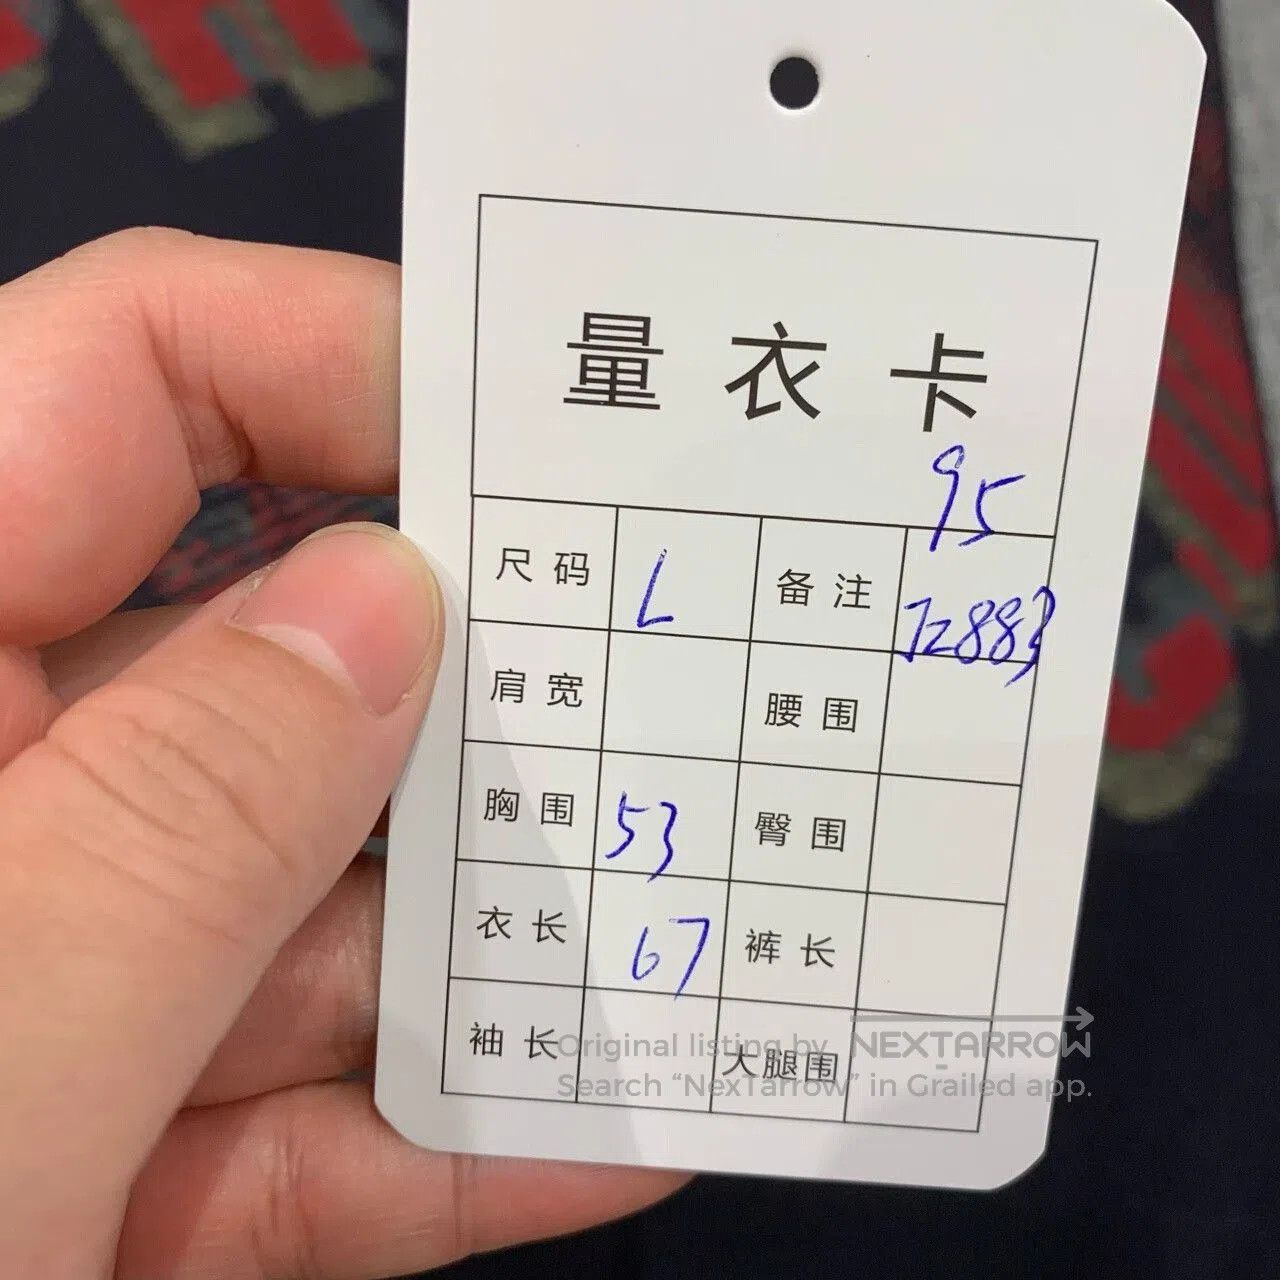 量衣卡
95
尺码 L 备注 J2883
肩宽 腰围
胸围 53 臀围
衣长 67 裤长
袖长 大腿围
Original listing by NEXTARROW
Search “NexTarrow” in Grailed app.